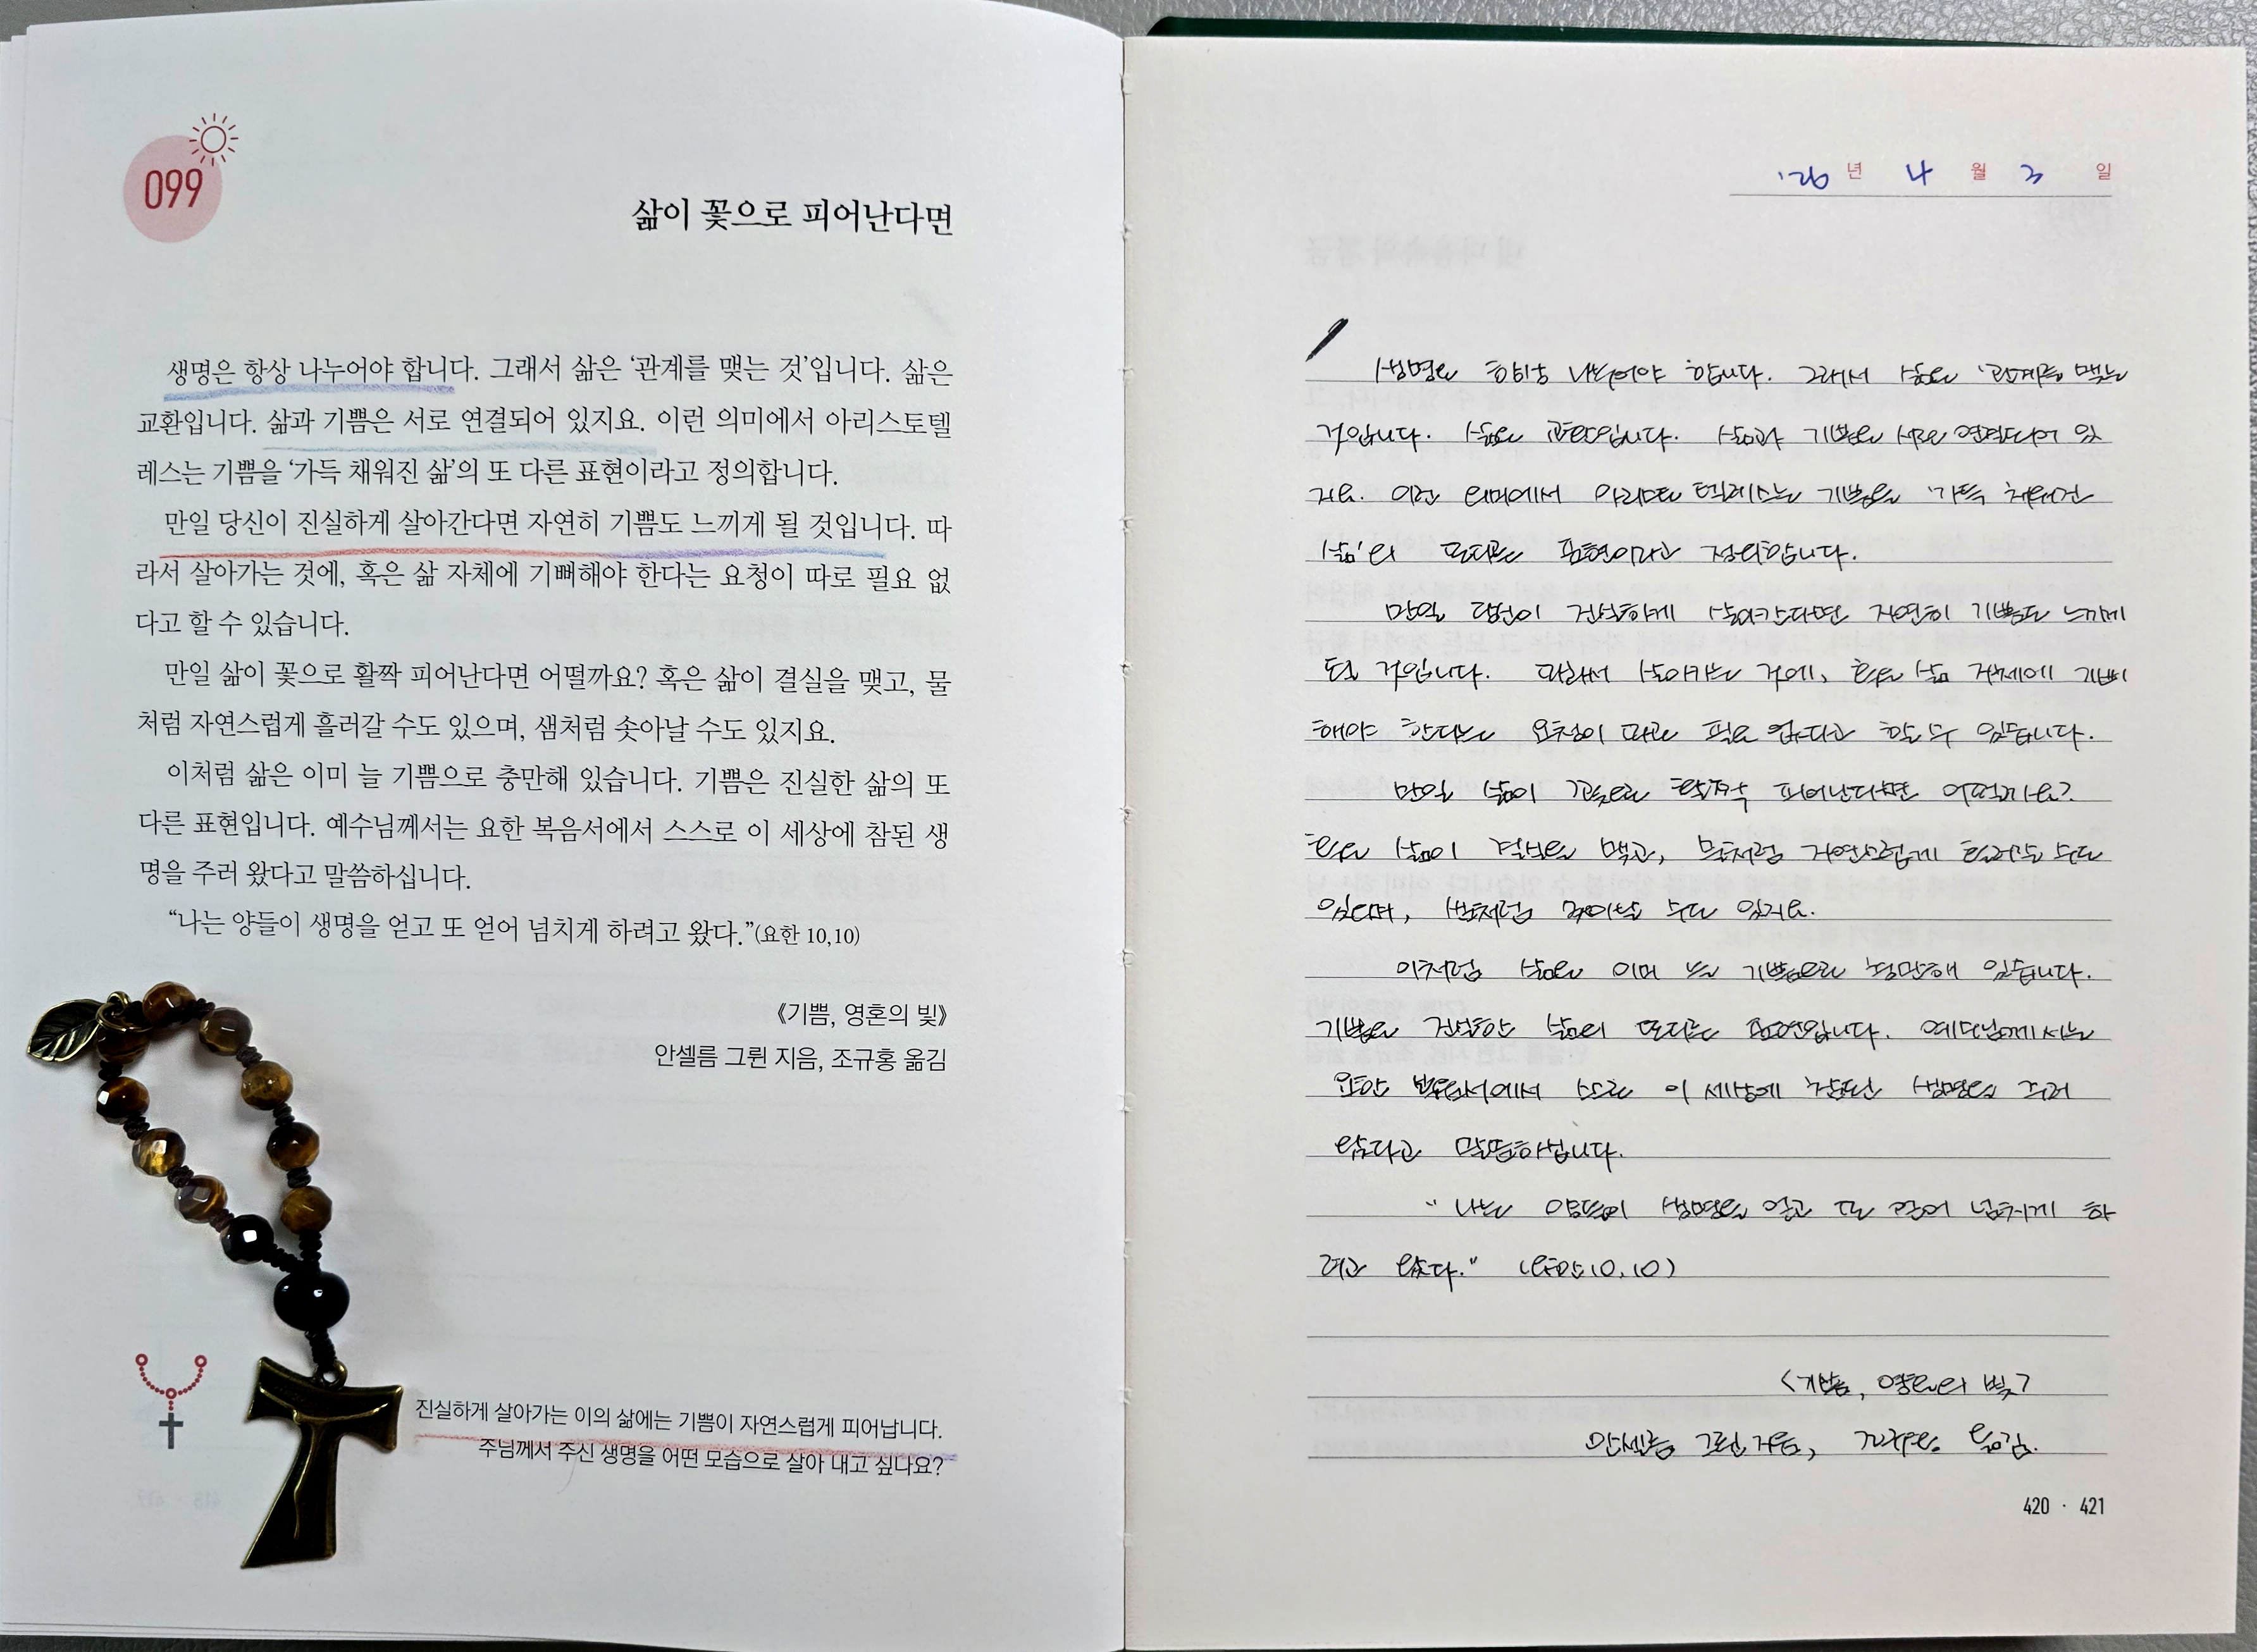 099
삶이 꽃으로 피어난다면
생명은 항상 나누어야 합니다. 그래서 삶은 ‘관계를 맺는 것’입니다. 삶은
교환입니다. 삶과 기쁨은 서로 연결되어 있지요. 이런 의미에서 아리스토텔
레스는 기쁨을 ‘가득 채워진 삶’의 또 다른 표현이라고 정의합니다.
만일 당신이 진실하게 살아간다면 자연히 기쁨도 느끼게 될 것입니다. 따
라서 살아가는 것에, 혹은 삶 자체에 기뻐해야 한다는 요청이 따로 필요 없
다고 할 수 있습니다.
만일 삶이 꽃으로 활짝 피어난다면 어떨까요? 혹은 삶이 결실을 맺고, 물
처럼 자연스럽게 흘러갈 수도 있으며, 샘처럼 솟아날 수도 있지요.
이처럼 삶은 이미 늘 기쁨으로 충만해 있습니다. 기쁨은 진실한 삶의 또
다른 표현입니다. 예수님께서는 요한 복음서에서 스스로 이 세상에 참된 생
명을 주러 왔다고 말씀하십니다.
“나는 양들이 생명을 얻고 또 얻어 넘치게 하려고 왔다.”(요한 10,10)
《기쁨, 영혼의 빛》
안셀름 그륀 지음, 조규홍 옮김
진실하게 살아가는 이의 삶에는 기쁨이 자연스럽게 피어납니다.
주님께서 주신 생명을 어떤 모습으로 살아 내고 싶나요?
'26 년 4 월 3 일
생명은 항상 나누어야 합니다. 그래서 삶은 '관계를 맺는
것'입니다. 삶은 교환입니다. 삶과 기쁨은 서로 연결되어 있
지요. 이런 의미에서 아리스토텔레스는 기쁨을 '가득 채워진
삶'의 또다른 표현이라고 정의합니다.
만일 당신이 진실하게 살아간다면 자연히 기쁨도 느끼게
될 것입니다. 따라서 살아가는 것에, 혹은 삶 자체에 기뻐
해야 한다는 요청이 따로 필요 없다고 할 수 있습니다.
만일 삶이 꽃으로 활짝 피어난다면 어떨까요?
혹은 삶이 결실을 맺고, 물처럼 자연스럽게 수도
있으며, 샘처럼 솟아날 수도 있지요.
이처럼 삶은 이미 늘 기쁨으로 충만해 있습니다.
기쁨은 진실한 삶의 또다른 표현입니다. 예수님께서는
요한 복음서에서 스스로 이 세상에 참된 생명을 주러
왔다고 말씀하십니다.
"나는 양들이 생명을 얻고 또 얻어 넘치게 하
려고 왔다." (요한 10,10)
<기쁨, 영혼의 빛>
안셀름 그륀 지음, 조규홍 옮김.
420 · 421